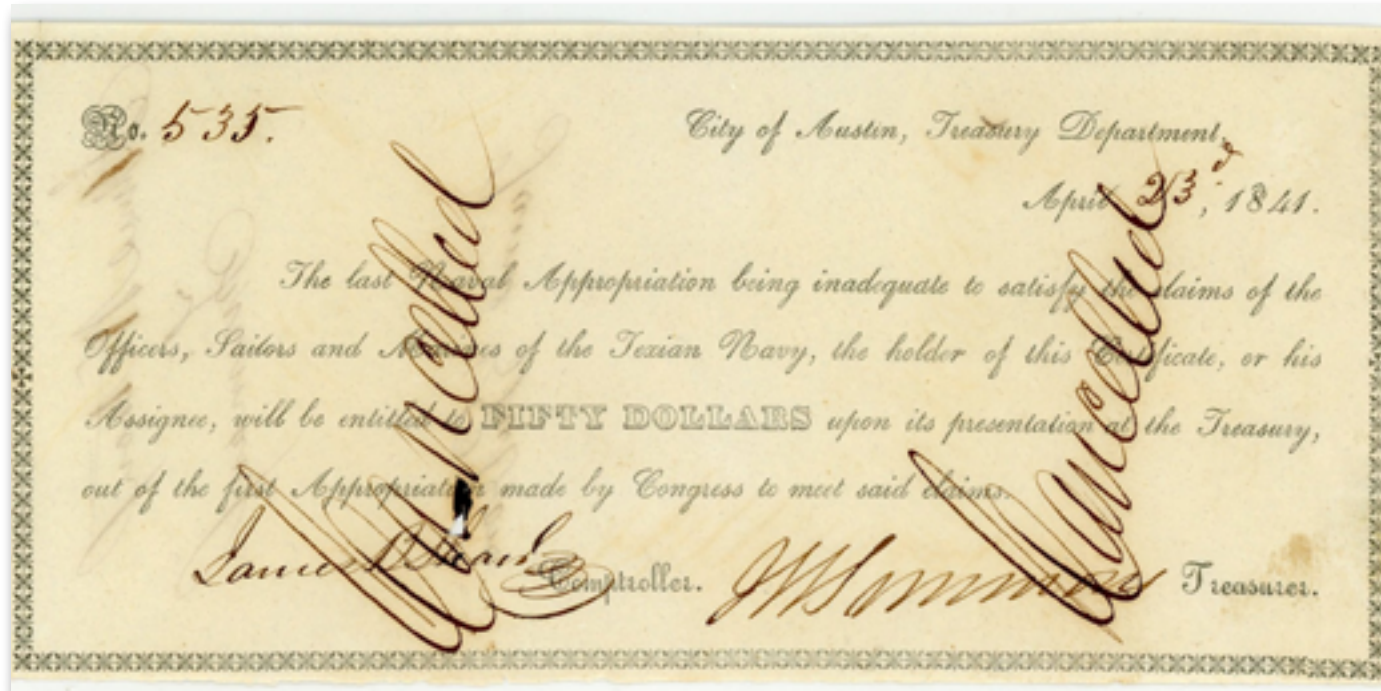 No. 535.
City of Austin, Treasury Department,
April 23d, 1841.
The last Naval Appropriation being inadequate to satisfy the claims of the
Officers, Sailors and Marines of the Texian Navy, the holder of this Certificate, or his
Assignee, will be entitled to FIFTY DOLLARS upon its presentation at the Treasury,
out of the first Appropriation made by Congress to meet said claims.
James B Shaw Comptroller. J W Simmons Treasurer.
Cancelled
Cancelled